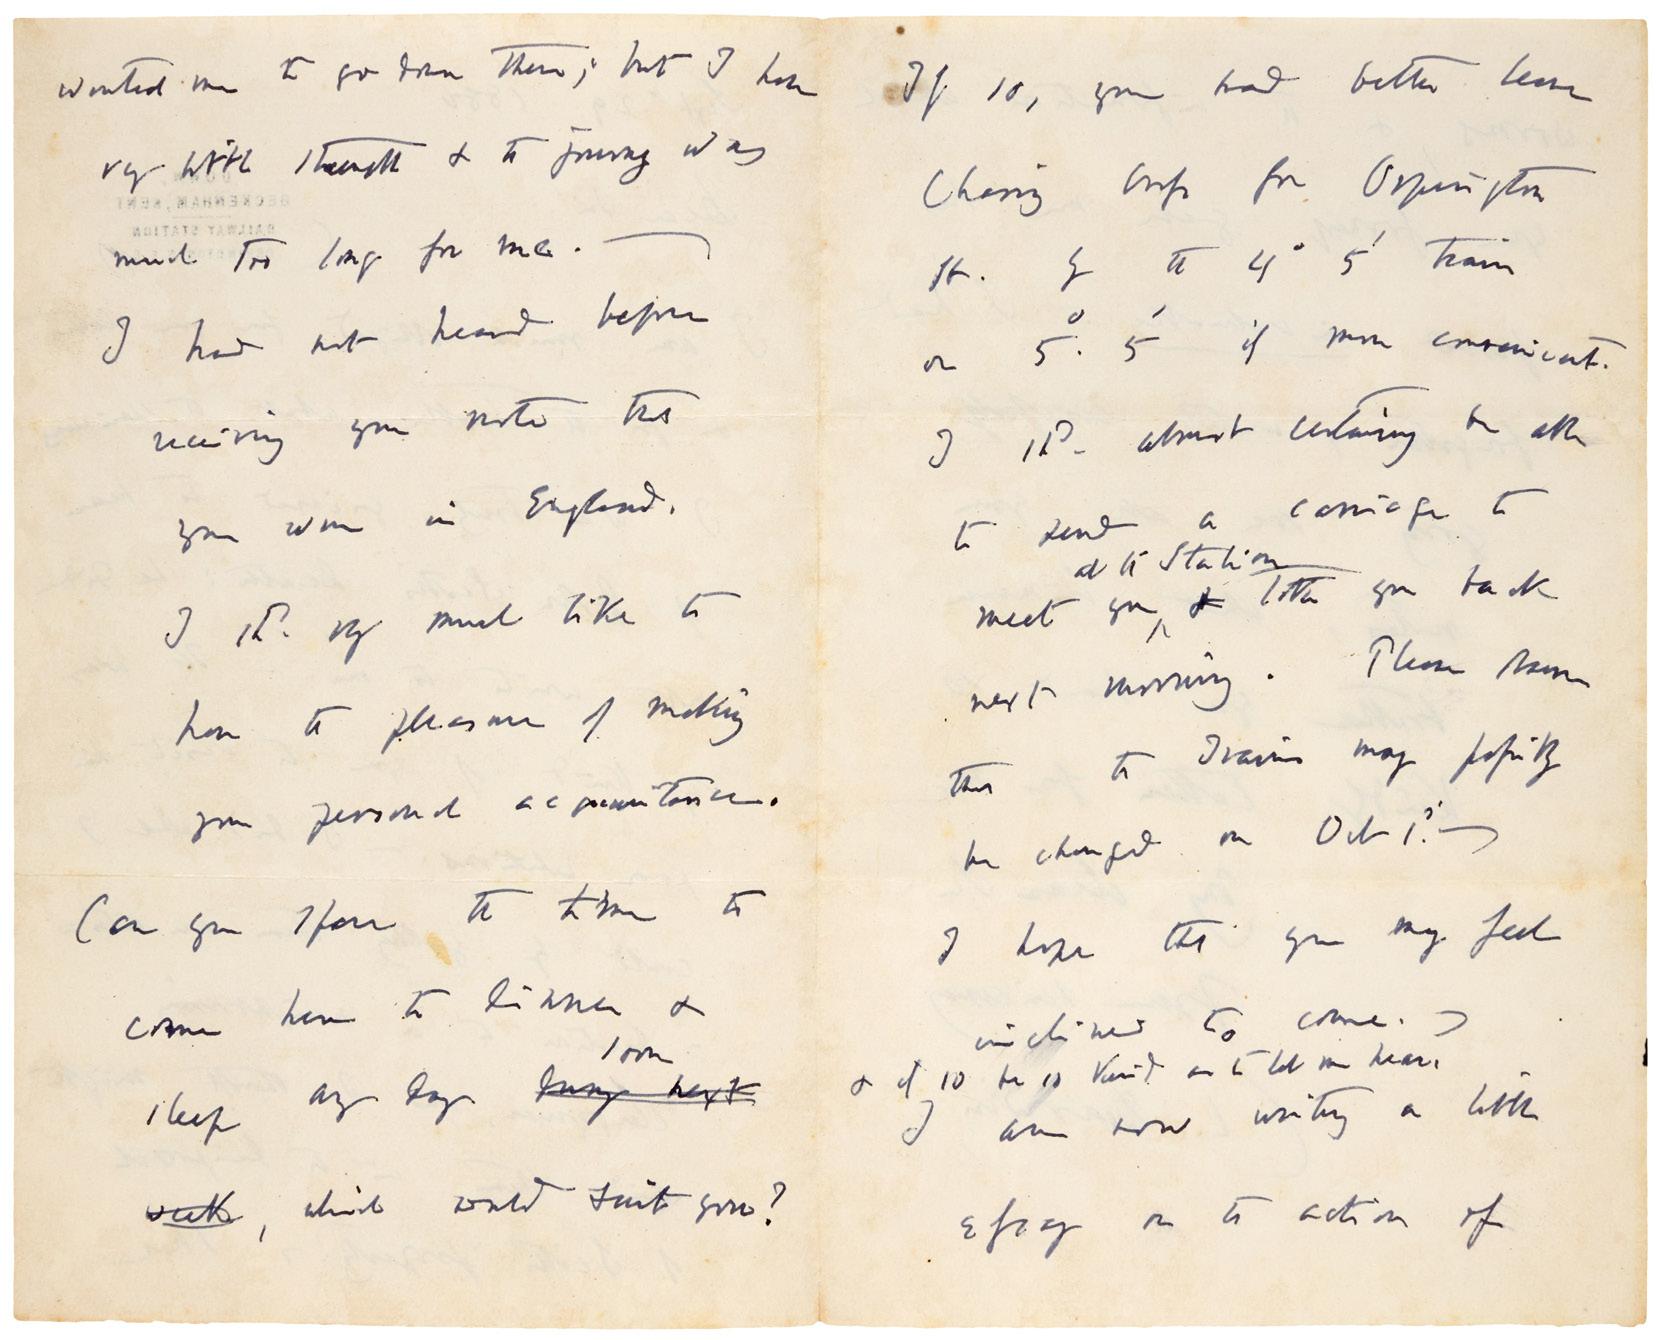 wanted me to go down there; but I have
very little strength & the journey was
much too long for me. —
I had not heard before
receiving your note that
you were in England.
I shd. very much like to
have the pleasure of making
your personal acquaintance.
Can you spare the time to
come here to dinner &
soon
sleep any day during next
week, which would suit you?
If so, you had better leave
Charing Cross for Orpington
St. by the 4° 5' train
or 5° 5' if more convenient.
I shd. almost certainly be able
to send a carriage to
at the Station
meet you, & take you back
next morning. Please
that the trains may possibly
be changed on Oct 1st. —
I hope that you may feel
inclined to come. —
& if so be so kind as to let me hear.
I am now writing a little
essay on the action of
BECKENHAM, KENT
RAILWAY STATION